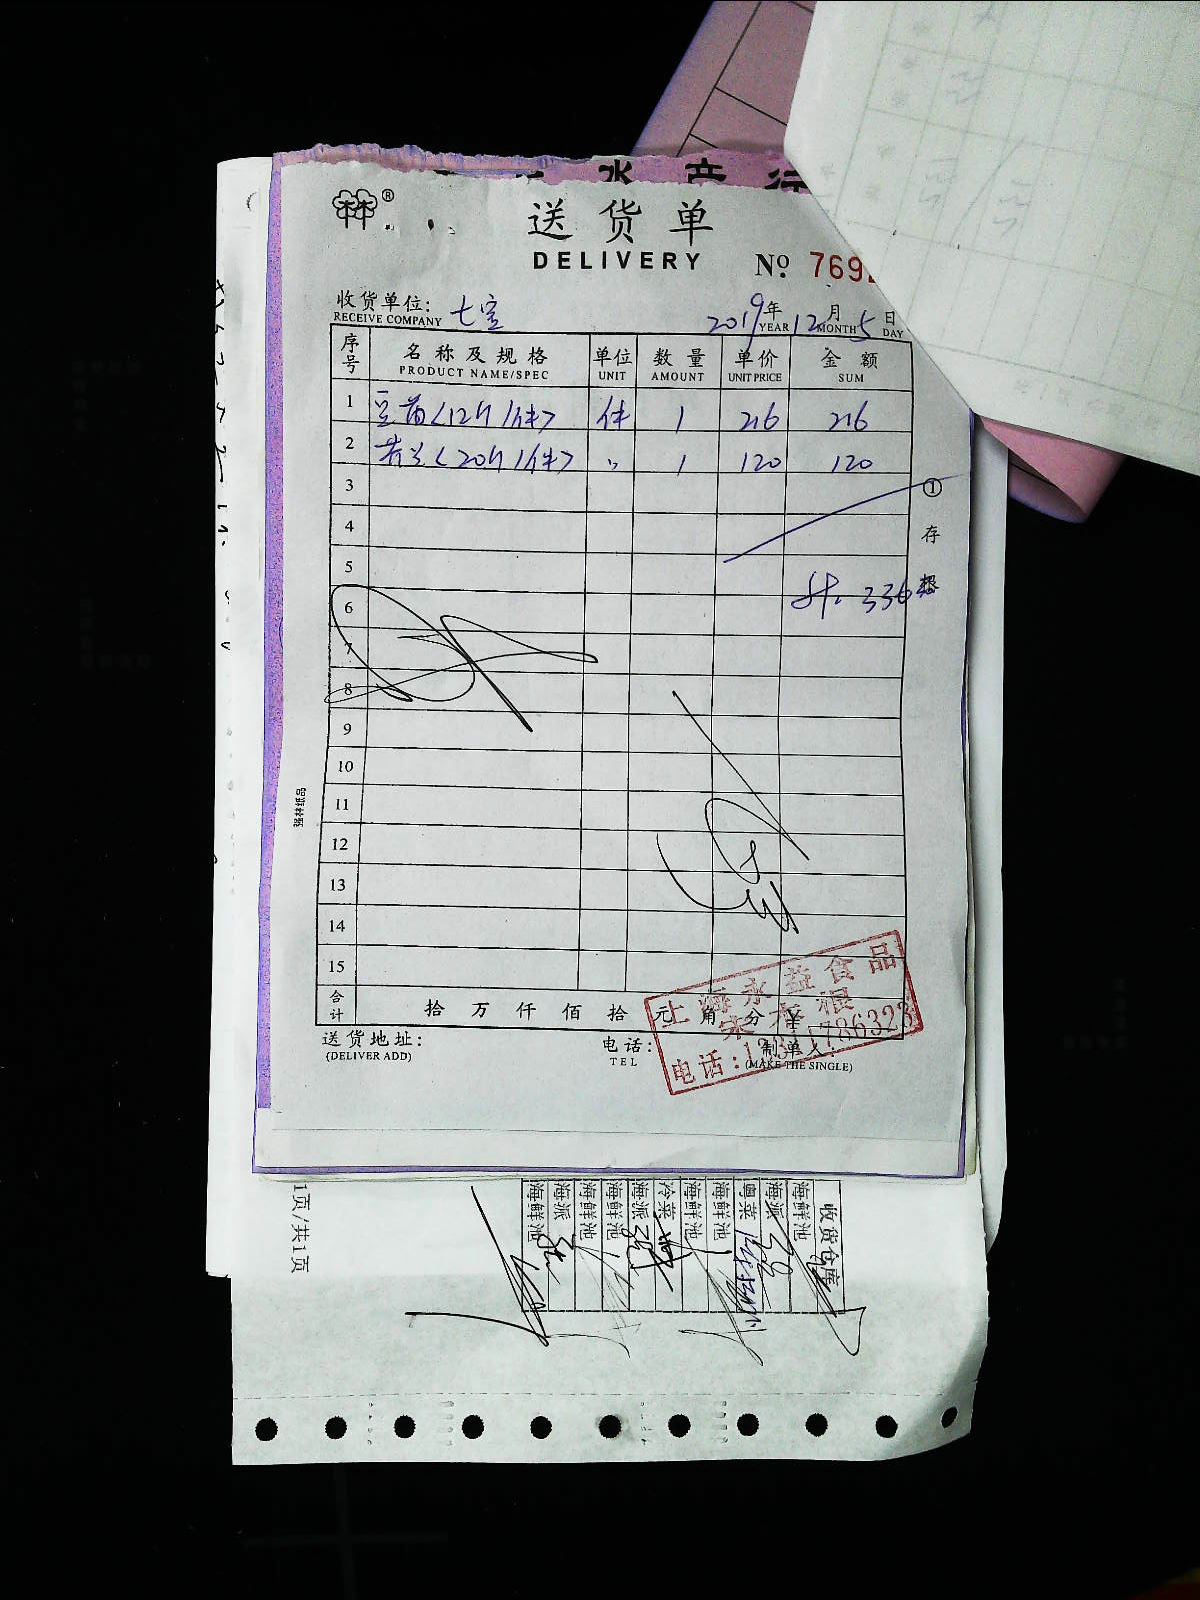 水产行
林林®
送货单
DELIVERY
№ 769
收货单位: 七宝 2019年12月5日
RECEIVE COMPANY YEAR MONTH DAY
序号 名称及规格 单位 数量 单价 金额
PRODUCT NAME/SPEC UNIT AMOUNT UNIT PRICE SUM
1 豆苗<12斤/件> 件 1 216 216
2 芥兰<20斤/件> 〃 1 120 120
3
4
5 计. 336
6
7
8
9
10
11
12
13
14
15
① 存根
强林纸品
合计 拾 万 仟 佰 拾 元 角 分 ¥
送货地址: 电话: 制单人:
(DELIVER ADD) TEL (MAKE THE SINGLE)
上海永益食品
电话:
1页/共1页
收货仓库
海鲜池
海派
粤菜
海鲜池
海鲜池
冷菜
海派
海鲜池
海鲜池
海派
海鲜池